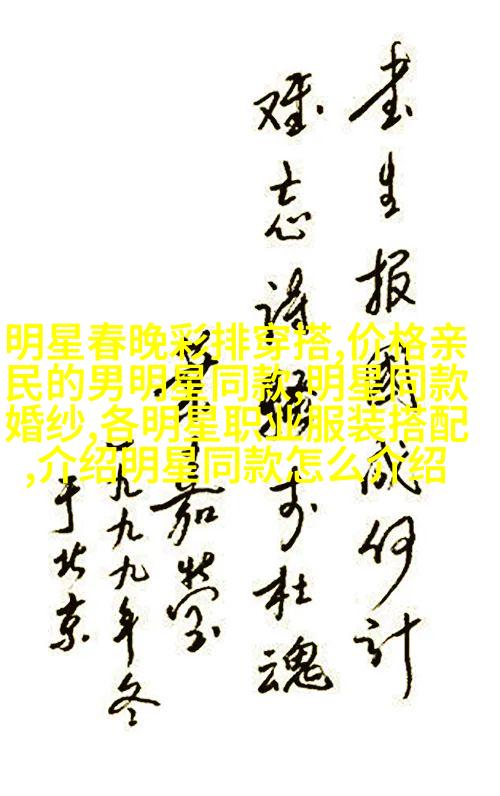 书生报國成何计
难忘诗骚李杜魂
葉嘉莹
一九九九年冬
于北京
明星春晚彩排穿搭,价格亲
民的男明星同款,明星同款
婚纱,各明星职业服装搭配
,介绍明星同款怎么介绍